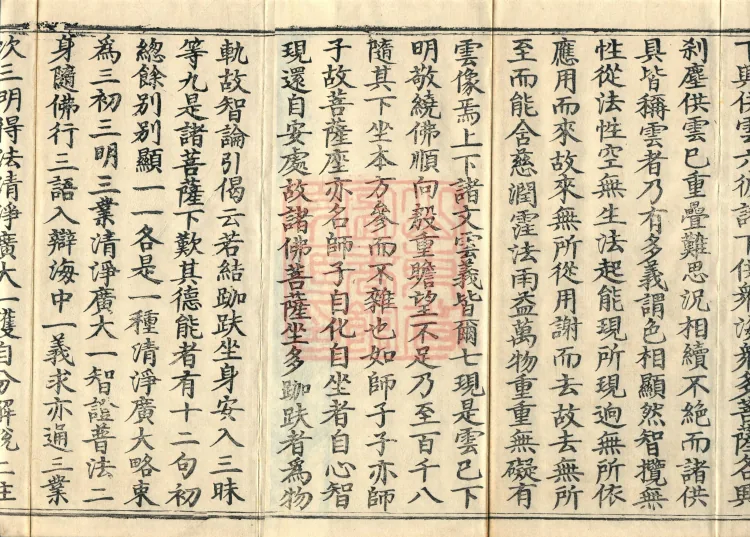 剎塵供雲已重疊難思況相續不絕而諸供
具皆稱雲者乃有多義謂色相顯然智攬無
性從法性空無生法起能現所現逈無所依
應用而來故來無所從用謝而去故去無所
至而能含慈潤霔法雨益萬物重重無礙有
雲像焉上下諸文雲義皆爾七現是雲已下
明敬繞佛順向殷重瞻望不足乃至百千八
隨其下坐本方參而不雜也如師子子亦師
子故菩薩座亦名師子自化自坐者自心智
現還自安處故諸佛菩薩坐多跏趺者為物
軌故智論引偈云若結跏趺坐身安入三昧
等九是諸菩薩下歎其德能者有十二句初
總餘別別顯一一各是一種清淨廣大略束
為三初三明三業清淨廣大一智證普法二
身隨佛行三語入辯海中一義求亦通三業
次三明得法清淨廣大一獲自分解脫二住